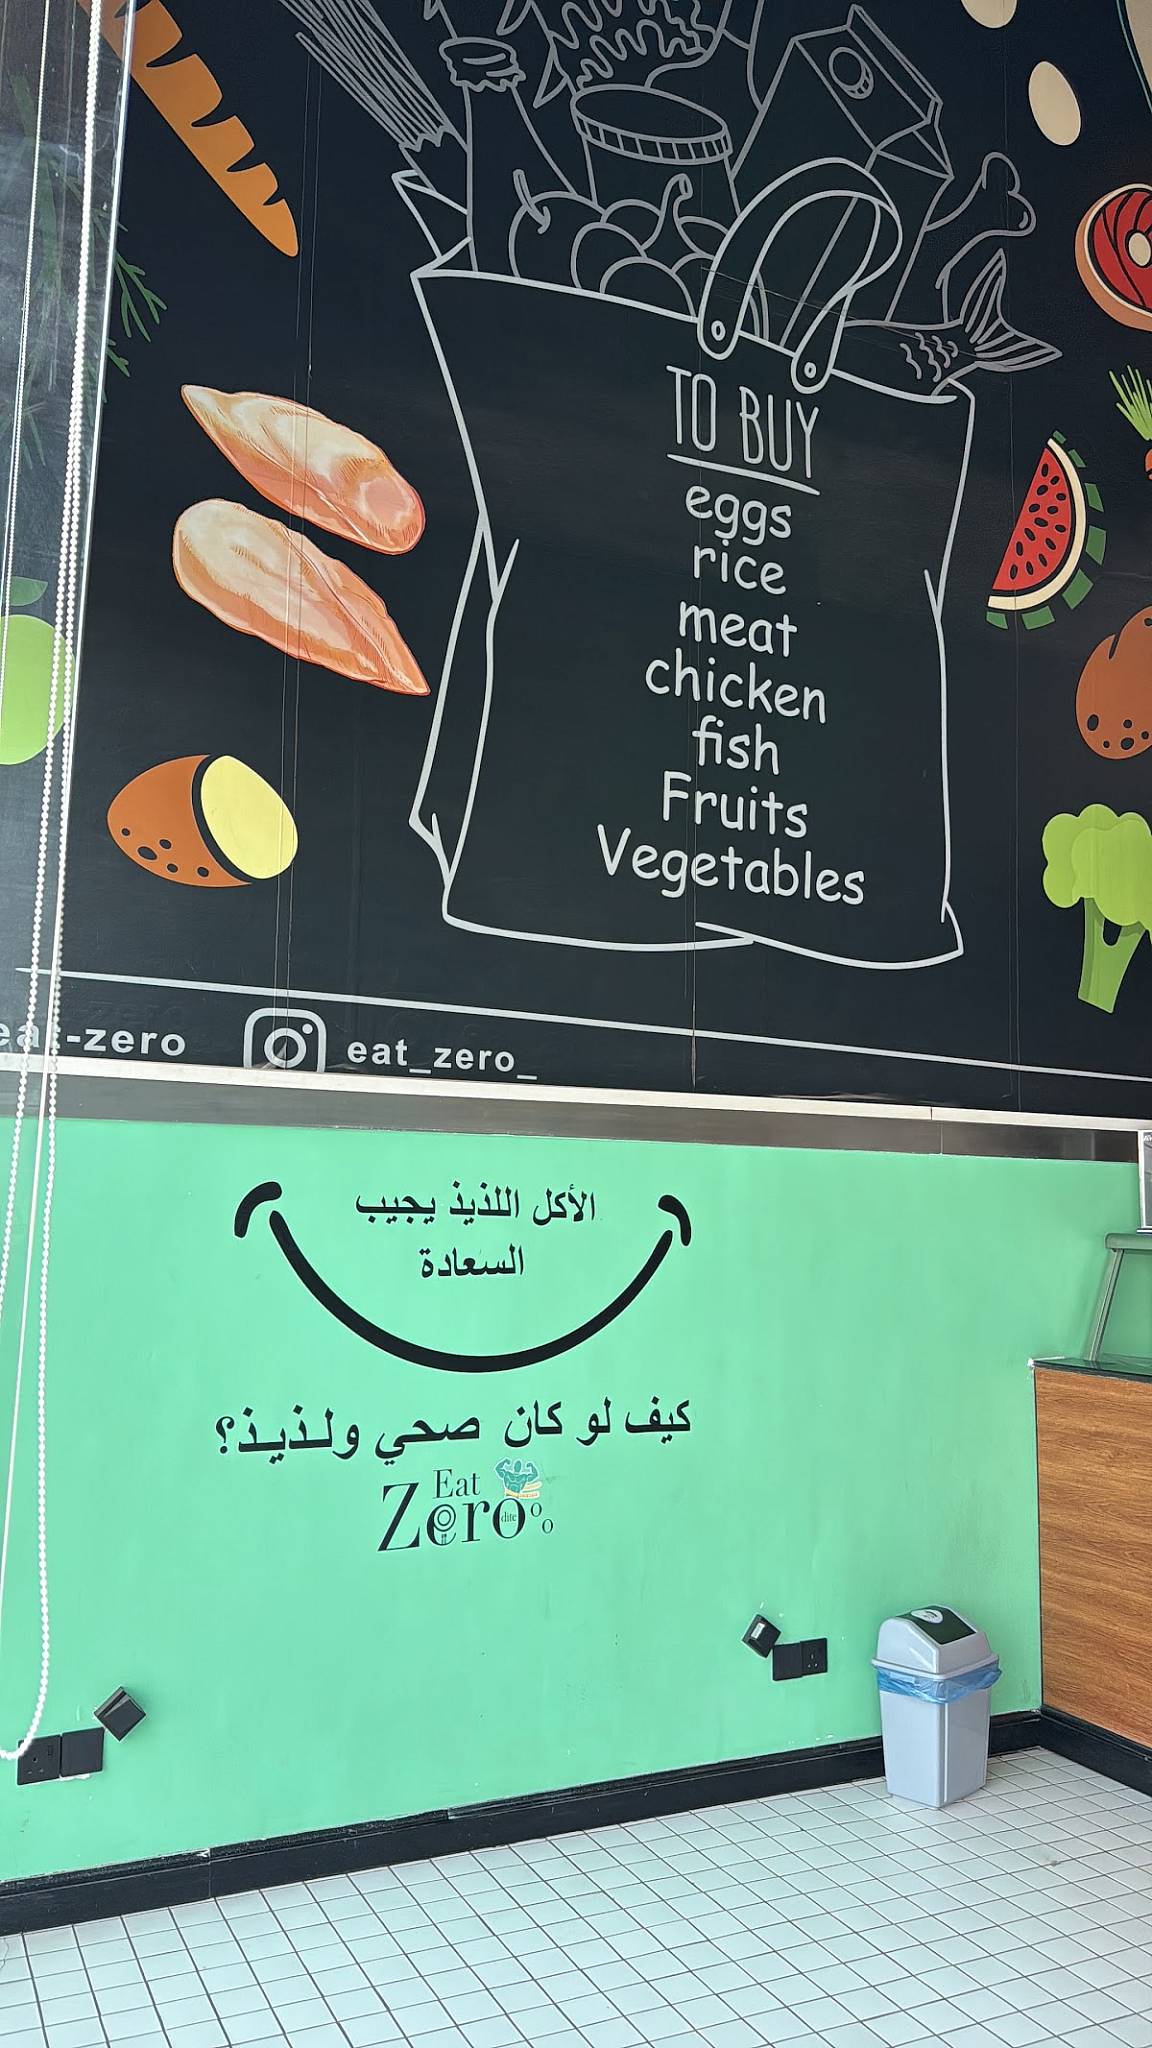 TO BUY
eggs
rice
meat
chicken
fish
Fruits
Vegetables
eat-zero
eat_zero_
الأكل اللذيذ يجيب
السعادة
كيف لو كان صحي ولـذيـذ؟
Eat
Zero
dite